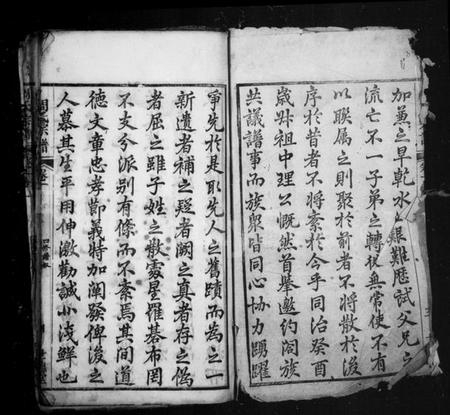 加兼之早乾水之艱難歷試父兄之
流亡不一子弟之轉徙無常使不有
以聯属之則聚於前者不將散於後
序於昔者不將紊於今乎同治癸酉
歲牀祖中理公慨然首舉邀約闔族
共議譜事而族衆皆同心協力踴躍
爭先於是取先人之舊蹟而為之一
新遺者補之疑者闕之真者存之偽
者屈之雖子姓之散處星羅棊布罔
不支分派別有條而不紊焉其間道
德文章忠孝節義特加闡發俾後之
人慕其生平用伸激勸誠小淺鮮也
宗譜